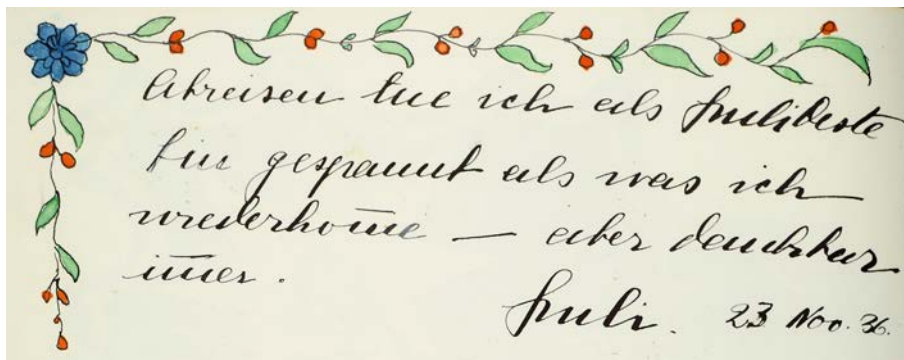 Abreisen tue ich als Julibeste
bin gespannt als was ich
wiederkom̅e — aber dankbar
im̅er.
Juli. 23 Nov. 36.